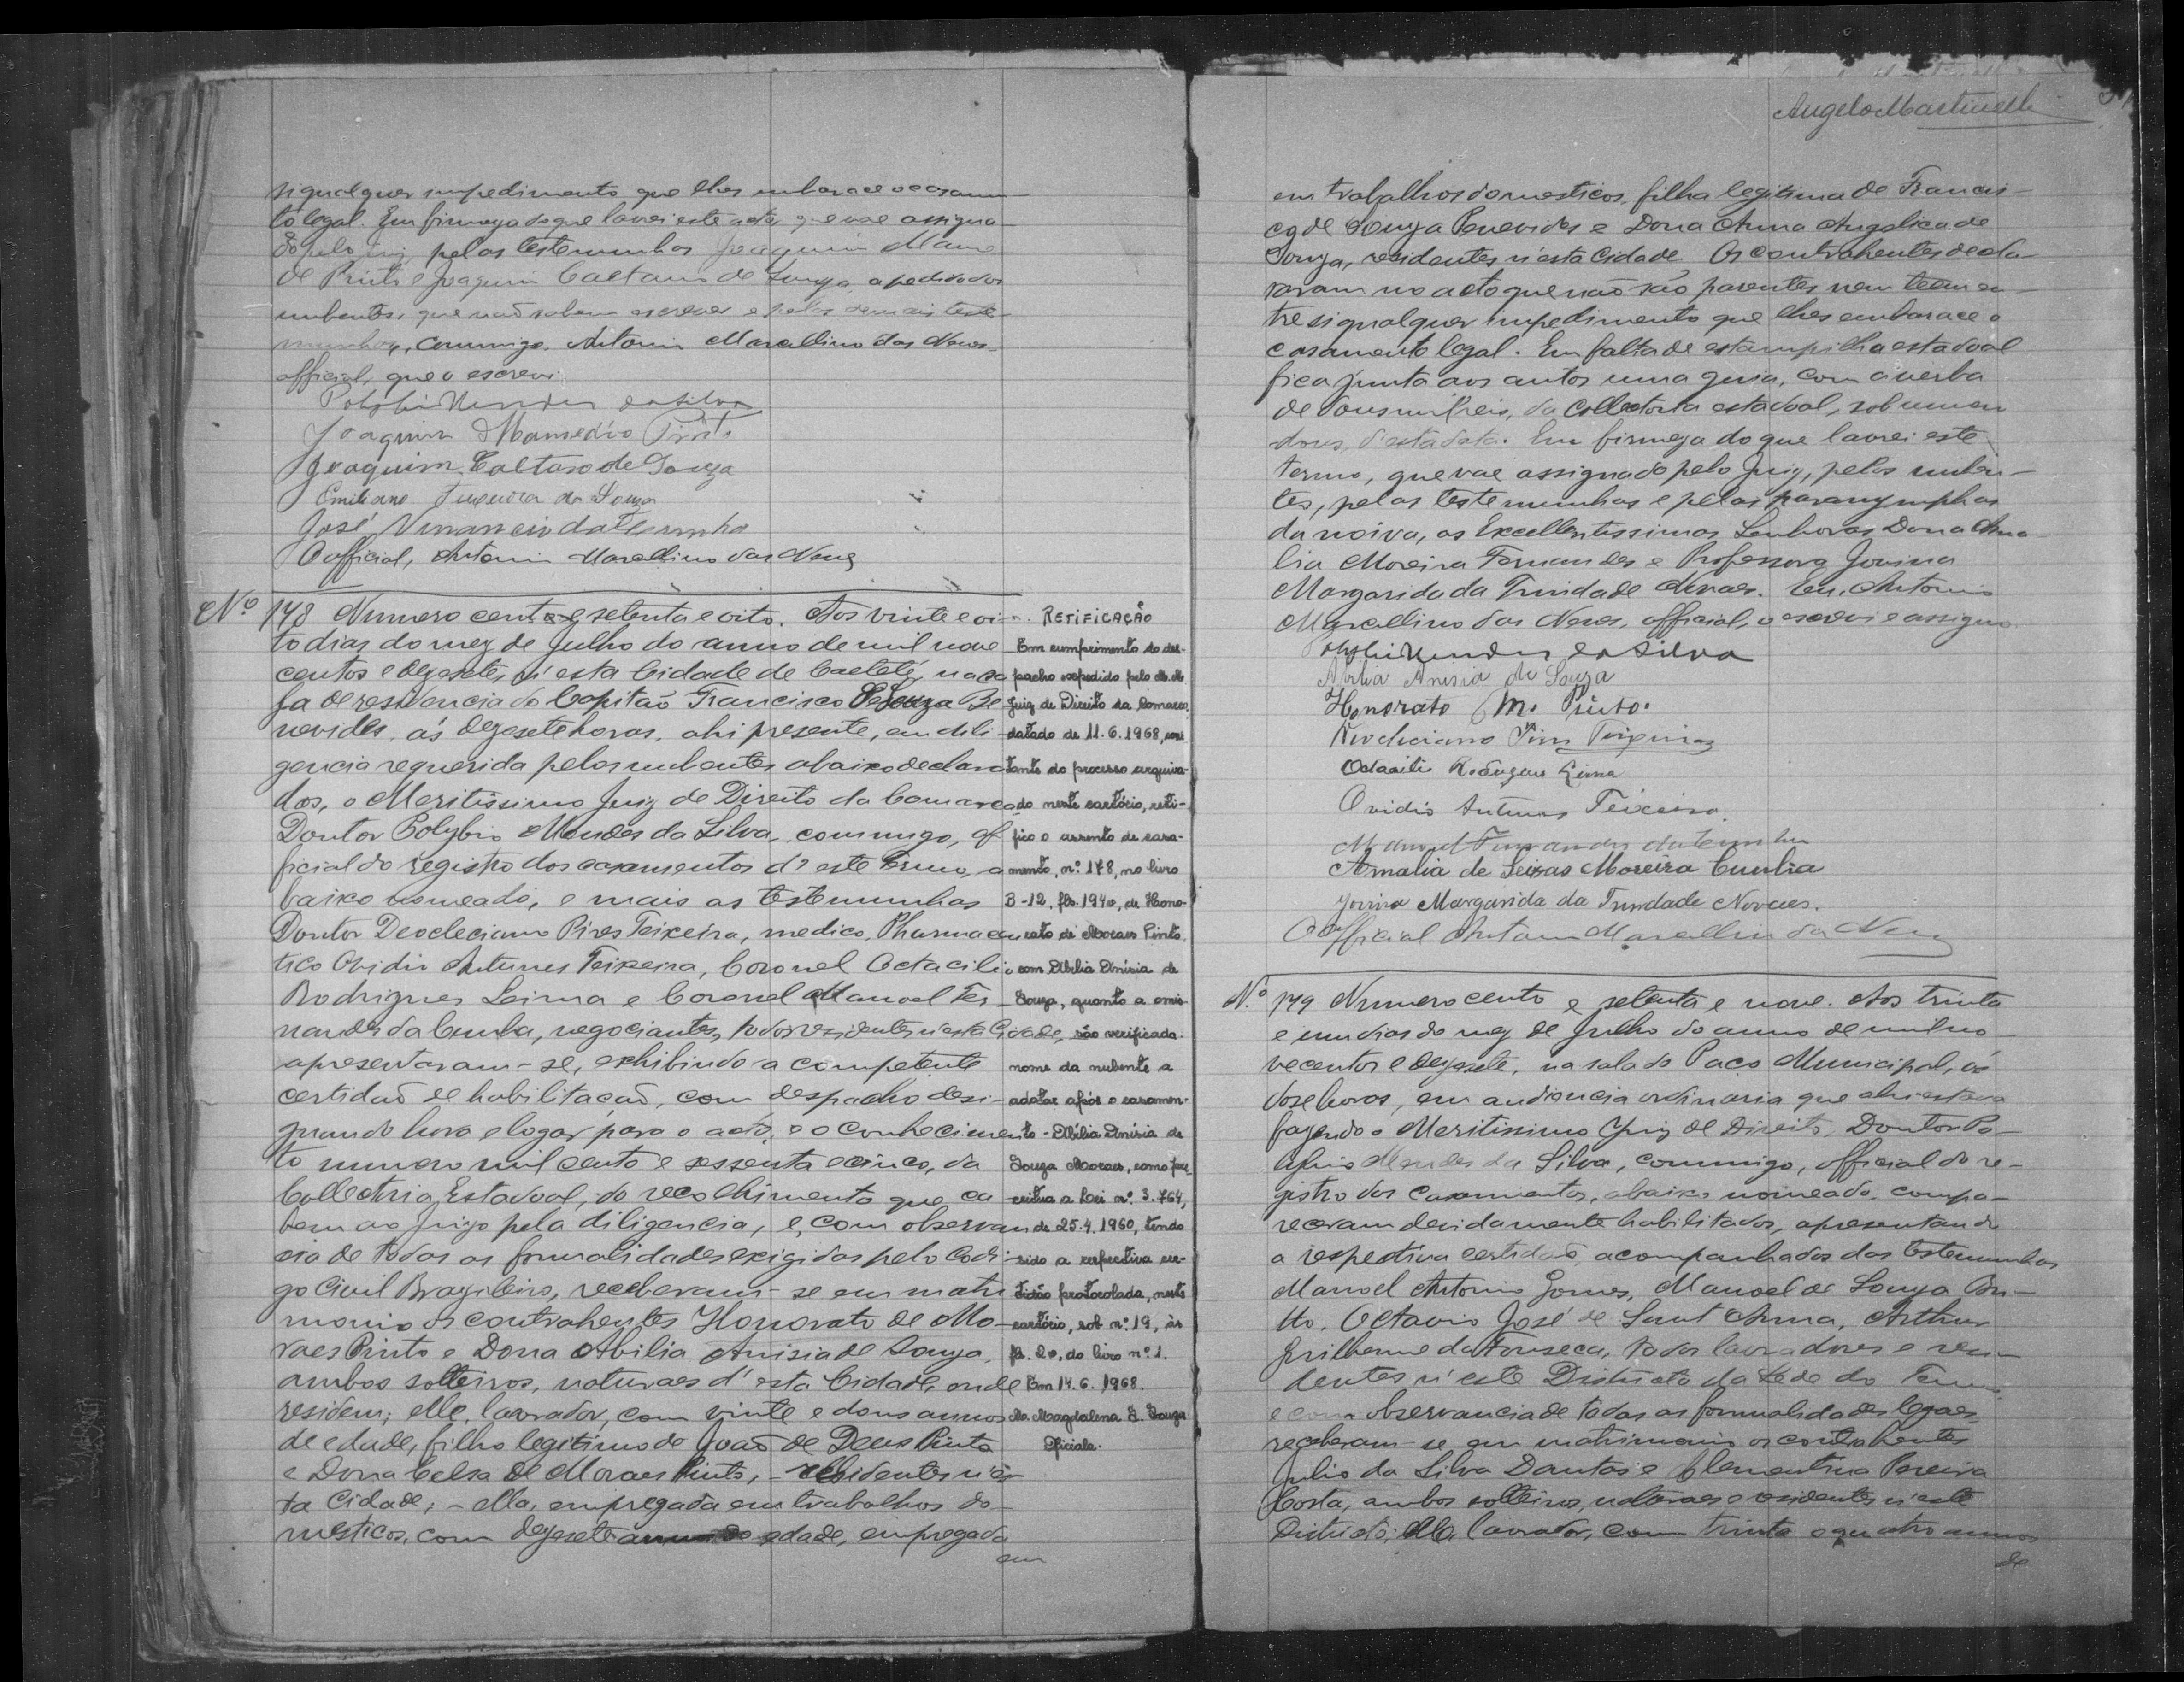 si qualquer impedimento que lhes embarace o casamen
to legal. Em firmeza do que lavrei este acto, que vae assigna
do pelo Juiz, pelas testemunhas Joaquim Mame
de Pinto e Joaquim Caetano de Souza a pedido dos
nubentes, que não sabem escrever e pelas demais teste-
munhas, commigo, Antonio Marcellino das Neves
official, que o escrevi.
Polybio Mendes da Silva
Joaquim Mamedio Pinto
Joaquim Caetano de Souza
Emiliano Teixeira de Souza
José Venancio da Cunha
O official, Antonio Marcellino das Neves
Nº 178 Numero cento e setenta e oito. Aos vinte e oi-
to dias do mez de Julho do anno de mil nove
centos e dezesete, n'esta Cidade de Caeteté, na ca
sa de residencia do Capitão Francisco de Souza Be
nevides, ás dezesete horas, ahi presente, em dili-
gencia requerida pelos nubentes abaixo declara
dos, o Meritissimo Juiz de Direito da Comarca
Doutor Polybio Mendes da Silva, commigo, of
ficial do registro dos casamentos d'este termo, a
baixo nomeado, e mais as testemunhas
Doutor Deocleciano Pires Teixeira, medico, Pharmaceu
tico Ovidio Antunes Teixeira, Coronel Octacilio
Rodrigues Leima e Coronel Manoel Fer
nandes da Cunha, negociantes, todos residentes n'esta Cidade,
apresentaram-se, exhibindo a competente
certidão de habilitação, com despacho desi-
gnando hora e logar para o acto, e o conhecimen
to numero mil cento e sessenta e cinco, da
Collectoria Estadoal, do recolhimento que ca
bem ao Juizo pela diligencia, e, com observan
cia de todas as formalidades exigidas pelo Codi-
go Civil Brazileiro, receberam-se em matri
monio os contrahentes Honorato de Mo-
raes Pinto e Dona Abilia Anisia de Souza,
ambos solteiros, naturaes d'esta Cidade, onde
residem; elle, lavrador, com vinte e dous annos
de edade, filho legitimo de João de Deus Pinto
e Dona Celsa de Moraes Pinto, residentes n'es
ta Cidade; - ella, empregada em trabalhos do-
mesticos, com dezesete annos de edade, empregada
em
RETIFICAÇÃO
Em cumprimento ao des-
pacho expedido pelo M.M.
Juiz de Direito da Comarca,
datado de 11.6.1968, cons
tante do processo arquiva-
do neste cartório, reti-
fico o assento de casa-
mento, nº 178, no livro
B-12, fls. 194v, de Hono-
rato de Moraes Pinto,
com Abilia Anísia de
Souza, quanto a omis-
são verificada
nome da nubente a
adotar após o casamen-
to - Abilia Anísia de
Souza Moraes, como pre
ceitua a Lei nº. 3.764,
de 25.4.1960, tendo
sido a respectiva cer-
tidão protocolada, neste
cartório, sob nº. 19, às
fls. 2v, do livro nº 1.
Em 14.6.1968.
Ma. Magdalena S. Souza
Oficiala.
Angelo Martinelli
em trabalhos domesticos, filha legitima de Francis-
co de Souza Benevides e Dona Anna Angelica de
Souza, residentes n'esta Cidade. Os contrahentes decla-
raram no acto que não são parentes nem teem en-
tre si qualquer impedimento que lhes embarace o
casamento legal. Em falta de estampilha estadoal
fica junta aos autos uma guia, com a verba
de dous mil reis, da Collectoria estadoal, sob numero
dous, d'esta data. Em firmeza do que lavrei este
termo, que vae assignado pelo Juiz, pelos nuben-
tes, pelas testemunhas e pelas paranymphas
da noiva, as Excellentissimas Senhoras Dona Ama
lia Moreira Fernandes e Professora Jovina
Margarida da Trindade Novaes. Eu, Antonio
Marcellino das Neves, official, o escrevi e assigno.
Polybio Mendes da Silva
Abilia Anisia de Souza
Honorato M. Pinto.
Deocleciano Pires Teixeira
Octacilio Rodrigues Leima
Ovidio Antunes Teixeira.
Manoel Fernandes da Cunha
Amalia de Seixas Moreira Cunha
Jovina Margarida da Trindade Novaes.
O official Antonio Marcellino das Neves
N.º 179 Numero cento e setenta e nove. Aos trinta
e um dias do mez de Julho do anno de mil no
vecentos e dezesete, na sala do Paço Municipal, ás
doze horas, em audiencia ordinaria que ahi estava
fazendo o Meritissimo Juiz de Direito, Doutor Po-
lybio Mendes da Silva, commigo, official do re-
gistro dos casamentos, abaixo nomeado, compa-
receram devidamente habilitados, apresentando
a respectiva certidão acompanhados das testemunhas
Manoel Antonio Gomes, Manoel de Souza Bri-
tto, Octavio José de Sant'Anna, Arthur
Guilherme da Fonseca, todos lavradores e resi-
dentes n'este Districto da séde do Termo,
e com observancia de todas as formalidades legaes,
receberam-se em matrimonio os contrahentes
Julio da Silva Dantas e Clementina Pereira
Costa, ambos solteiros, naturaes e residentes n'este
Districto; elle, lavrador, com trinta e quatro annos
de